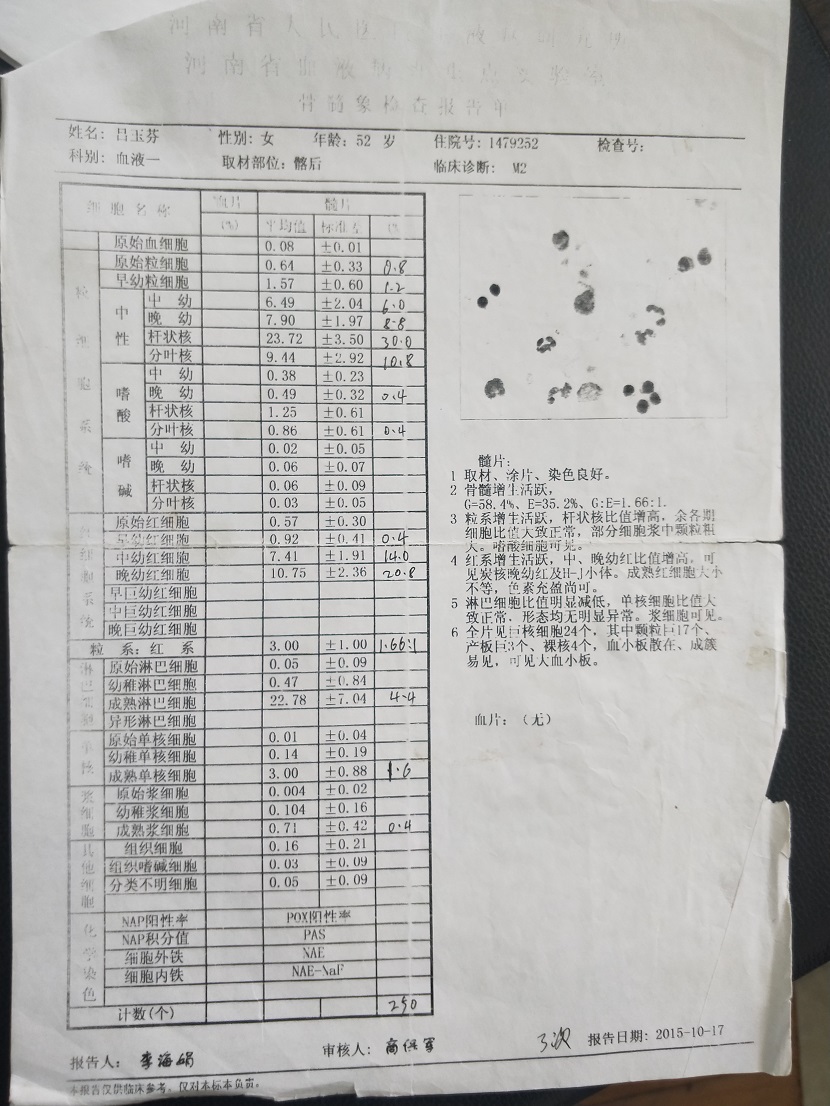 河南省人民医
河南省血液病
骨髓象检查报告单
姓名: 吕玉芬 性别: 女 年龄: 52 岁 住院号: 1479252 检查号:
科别: 血液一 取材部位: 髂后 临床诊断: M2
细胞名称 血片 髓片
(%) 平均值 标准差 (%)
粒细胞系统
原始血细胞 0.08 ±0.01
原始粒细胞 0.64 ±0.33 0.8
早幼粒细胞 1.57 ±0.60 1.2
中性 中幼 6.49 ±2.04 6.0
晚幼 7.90 ±1.97 8.8
杆状核 23.72 ±3.50 30.0
分叶核 9.44 ±2.92 10.8
嗜酸 中幼 0.38 ±0.23
晚幼 0.49 ±0.32 0.4
杆状核 1.25 ±0.61
分叶核 0.86 ±0.61 0.4
嗜碱 中幼 0.02 ±0.05
晚幼 0.06 ±0.07
杆状核 0.06 ±0.09
分叶核 0.03 ±0.05
原始红细胞 0.57 ±0.30
早幼红细胞 0.92 ±0.41 0.4
中幼红细胞 7.41 ±1.91 14.0
晚幼红细胞 10.75 ±2.36 20.8
早巨幼红细胞
中巨幼红细胞
晚巨幼红细胞
粒 系: 红 系 3.00 ±1.00 1.66:1
原始淋巴细胞 0.05 ±0.09
幼稚淋巴细胞 0.47 ±0.84
成熟淋巴细胞 22.78 ±7.04 4.4
异形淋巴细胞
单核
原始单核细胞 0.01 ±0.04
幼稚单核细胞 0.14 ±0.19
成熟单核细胞 3.00 ±0.88 1.6
浆细胞
原始浆细胞 0.004 ±0.02
幼稚浆细胞 0.104 ±0.16
成熟浆细胞 0.71 ±0.42 0.4
其他细胞
组织细胞 0.16 ±0.21
组织嗜碱细胞 0.03 ±0.09
分类不明细胞 0.05 ±0.09
化学染色
NAP阳性率 POX阳性率
NAP积分值 PAS
细胞外铁 NAE
细胞内铁 NAE-NaF
计数(个) 250
髓片:
1 取材、涂片、染色良好。
2 骨髓增生活跃,
G=58.4%、E=35.2%、G:E=1.66:1.
3 粒系增生活跃,杆状核比值增高,余各期
细胞比值大致正常,部分细胞浆中颗粒粗
大。嗜酸细胞可见。
4 红系增生活跃,中、晚幼红比值增高。可
见炭核晚幼红及H-J小体。成熟红细胞大小
不等,色素充盈尚可。
5 淋巴细胞比值明显减低,单核细胞比值大
致正常,形态均无明显异常。浆细胞可见。
6 全片见巨核细胞24个,其中颗粒巨17个、
产板巨3个、裸核4个,血小板散在、成簇
易见,可见大血小板。
血片:(无)
报告人: 李海娟 审核人: 报告日期: 2015-10-17
本报告仅供临床参考。仅对本标本负责。